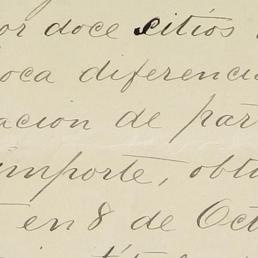 or doce citios
oca diferenci
acion de par
importe, obtu
en 8 de Oct